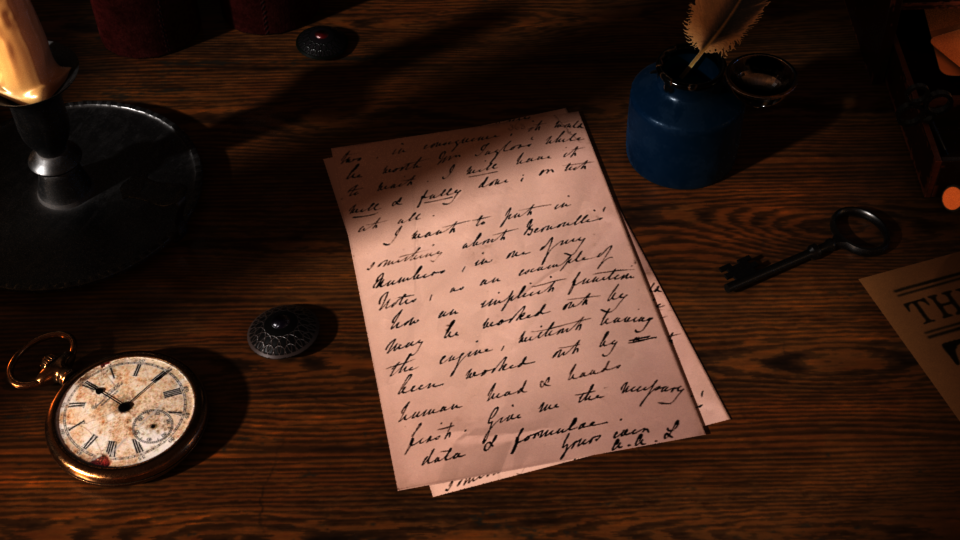 two, in consequence; it will
be most Gen. Taylors while
to march. I will have it
well & fully done; or not
at all.
I want to put in
something about Bernoulli's
Numbers, in one of my
Notes, as an example of
how an implicit function
may be worked out by
the engine, without having
been worked out by
human head & hands
first. Give me the necessary
data & formulae.
Yours ever
A. A. L
TH